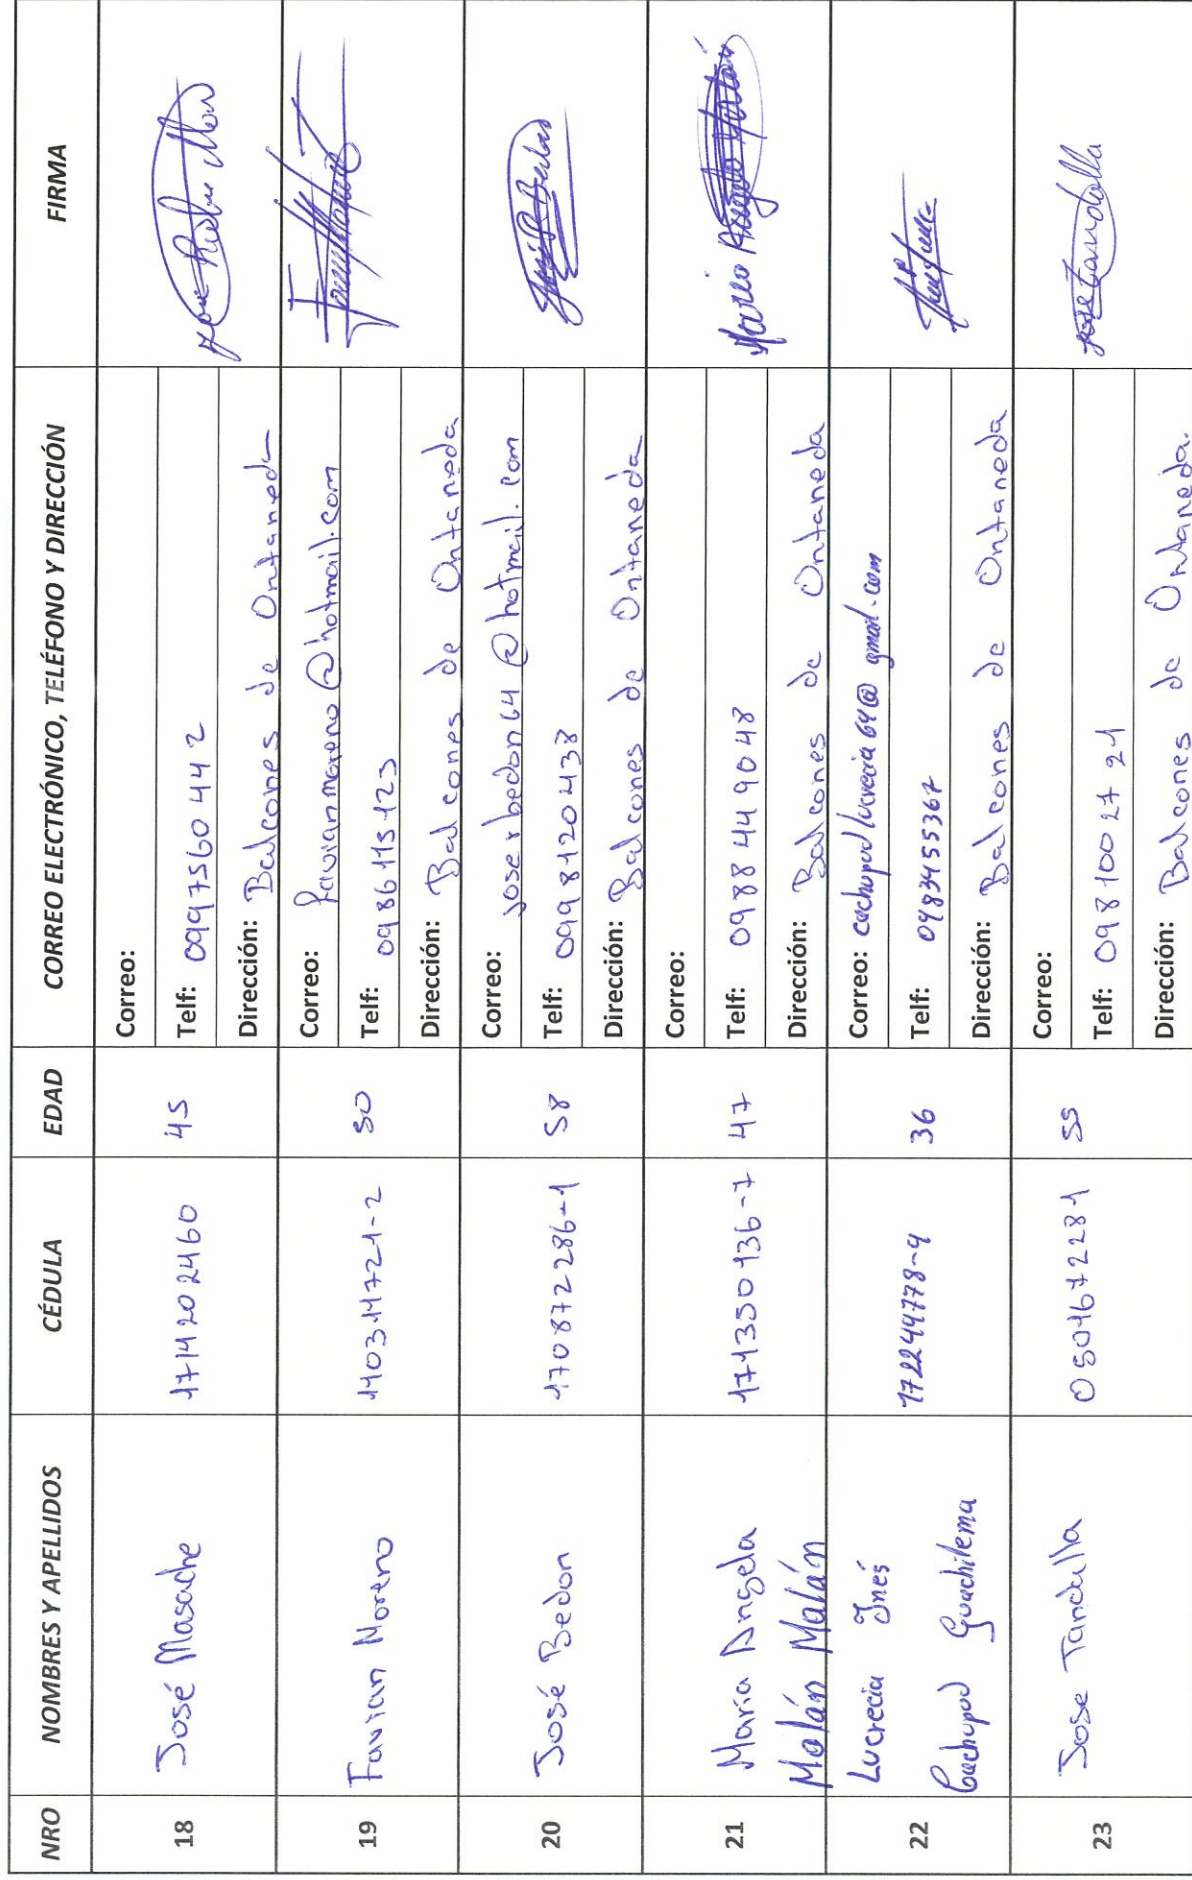 NRO NOMBRES Y APELLIDOS CÉDULA EDAD CORREO ELECTRÓNICO, TELÉFONO Y DIRECCIÓN FIRMA
18 José Masache 1714202460 45
Correo:
Telf: 0997560442
Dirección: Balcones de Ontaneda
19 Favian Moreno 110311721-2 50
Correo: favianmoreno@hotmail.com
Telf: 0986115123
Dirección: Balcones de Ontaneda
20 José Bedon 170872286-1 58
Correo: joserbedon64@hotmail.com
Telf: 0998120438
Dirección: Balcones de Ontaneda
21 María Angela 171350136-7 47
Malán Malán
Correo:
Telf: 0988449048
Dirección: Balcones de Ontaneda
María Angela Malán
22 Lucrecia Inés 172244778-9 36
Cachupud Guachilema
Correo: cachupudlucrecia64@gmail.com
Telf: 0983455367
Dirección: Balcones de Ontaneda
23 Jose Tandalla 0501672281 55
Correo:
Telf: 0981002721
Dirección: Balcones de Ontaneda.
Jose Tandalla